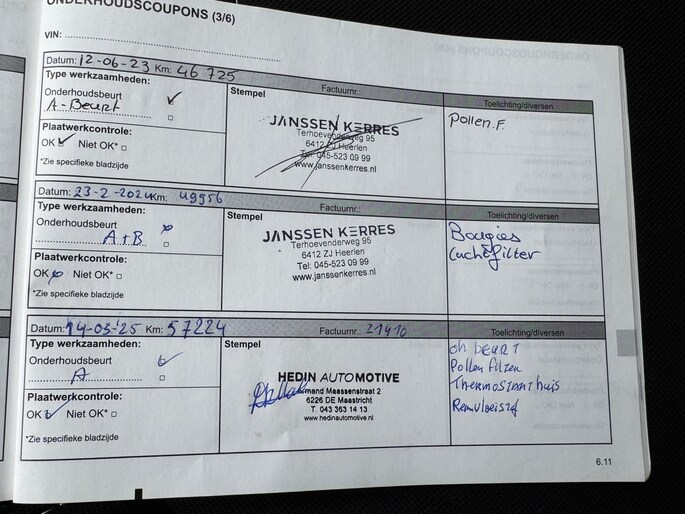 ONDERHOUDSCOUPONS (3/6)
VIN:
Datum: 12-06-23 Km: 46 725
Type werkzaamheden:
Onderhoudsbeurt
A-Beurt
Plaatwerkcontrole:
OK Niet OK*
*Zie specifieke bladzijde
Factuurnr.:
Stempel
JANSSEN KERRES
Terhoevenderweg 95
6412 ZJ Heerlen
Tel: 045-523 09 99
www.janssenkerres.nl
Toelichting/diversen
Pollen.F.
Datum: 23-2-2024 Km: 49956
Type werkzaamheden:
Onderhoudsbeurt
A+B
Plaatwerkcontrole:
OK Niet OK*
*Zie specifieke bladzijde
Factuurnr.:
Stempel
JANSSEN KERRES
Terhoevenderweg 95
6412 ZJ Heerlen
Tel: 045-523 09 99
www.janssenkerres.nl
Toelichting/diversen
Bougies
Luchtfilter
Datum: 14-03-'25 Km: 57224
Type werkzaamheden:
Onderhoudsbeurt
A
Plaatwerkcontrole:
OK Niet OK*
*Zie specifieke bladzijde
Factuurnr.: 21410
Stempel
HEDIN AUTOMOTIVE
Maassenstraat 2
6226 DE Maastricht
T. 043 363 14 13
www.hedinautomotive.nl
Toelichting/diversen
BEURT
Pollen Filter
Thermostaathuis
Remvloeistof
6.11